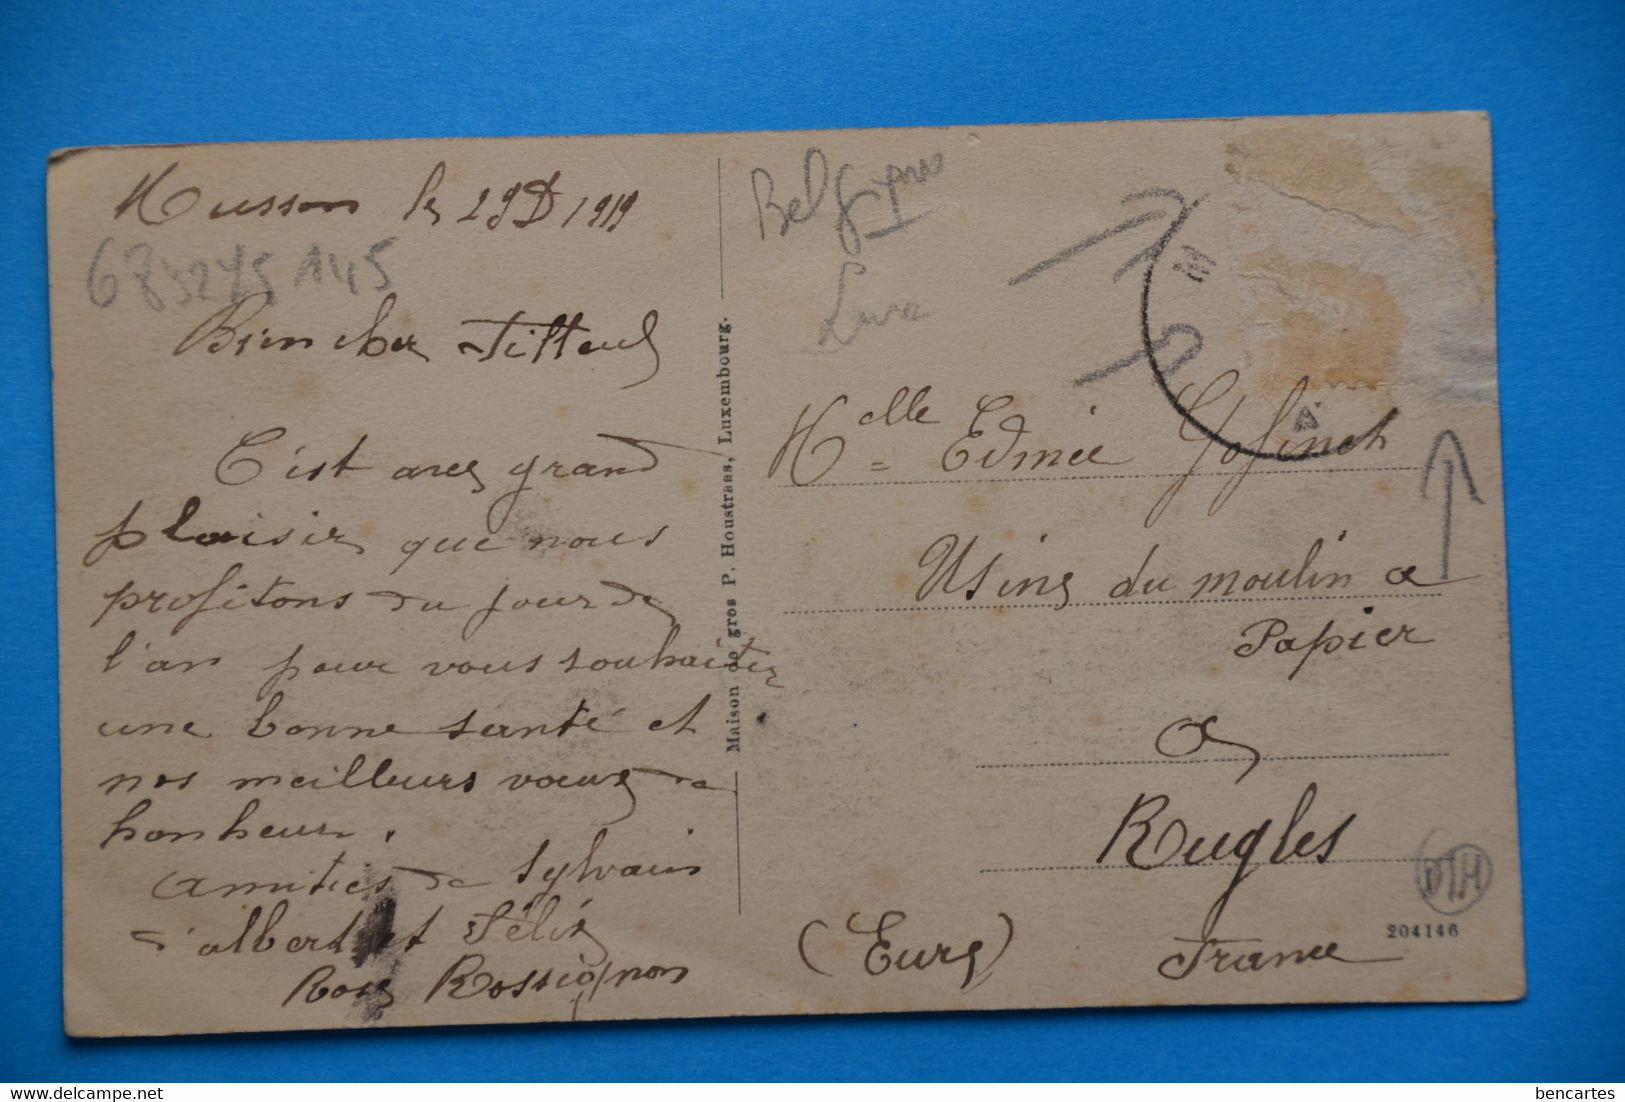 Musson le 29 D 1919
673275145
Bien cher Filleul
C'est avec grand
plaisir que nous
profitons du jour de
l'an pour vous souhaiter
une bonne santé et
nos meilleurs vœux de
bonheur.
amitiés de Sylvain
d'albert et Félix
Rossignon
Maison de gros P. Houstraas, Luxembourg.
Melle Edmée
Usine du moulin a
Papier
a
Rugles
(Eure) France
204146
DTM
delcampe.net
bencartes